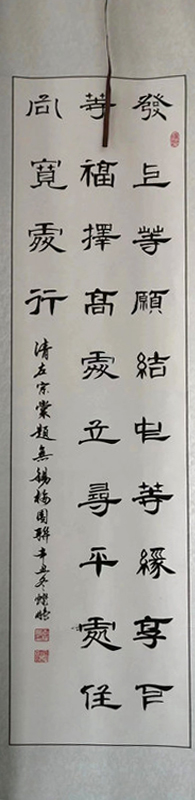 發上等願結中等緣享下
等福擇高處立尋平處住
向寬處行
清左宗棠題無錫梅園聯辛丑冬